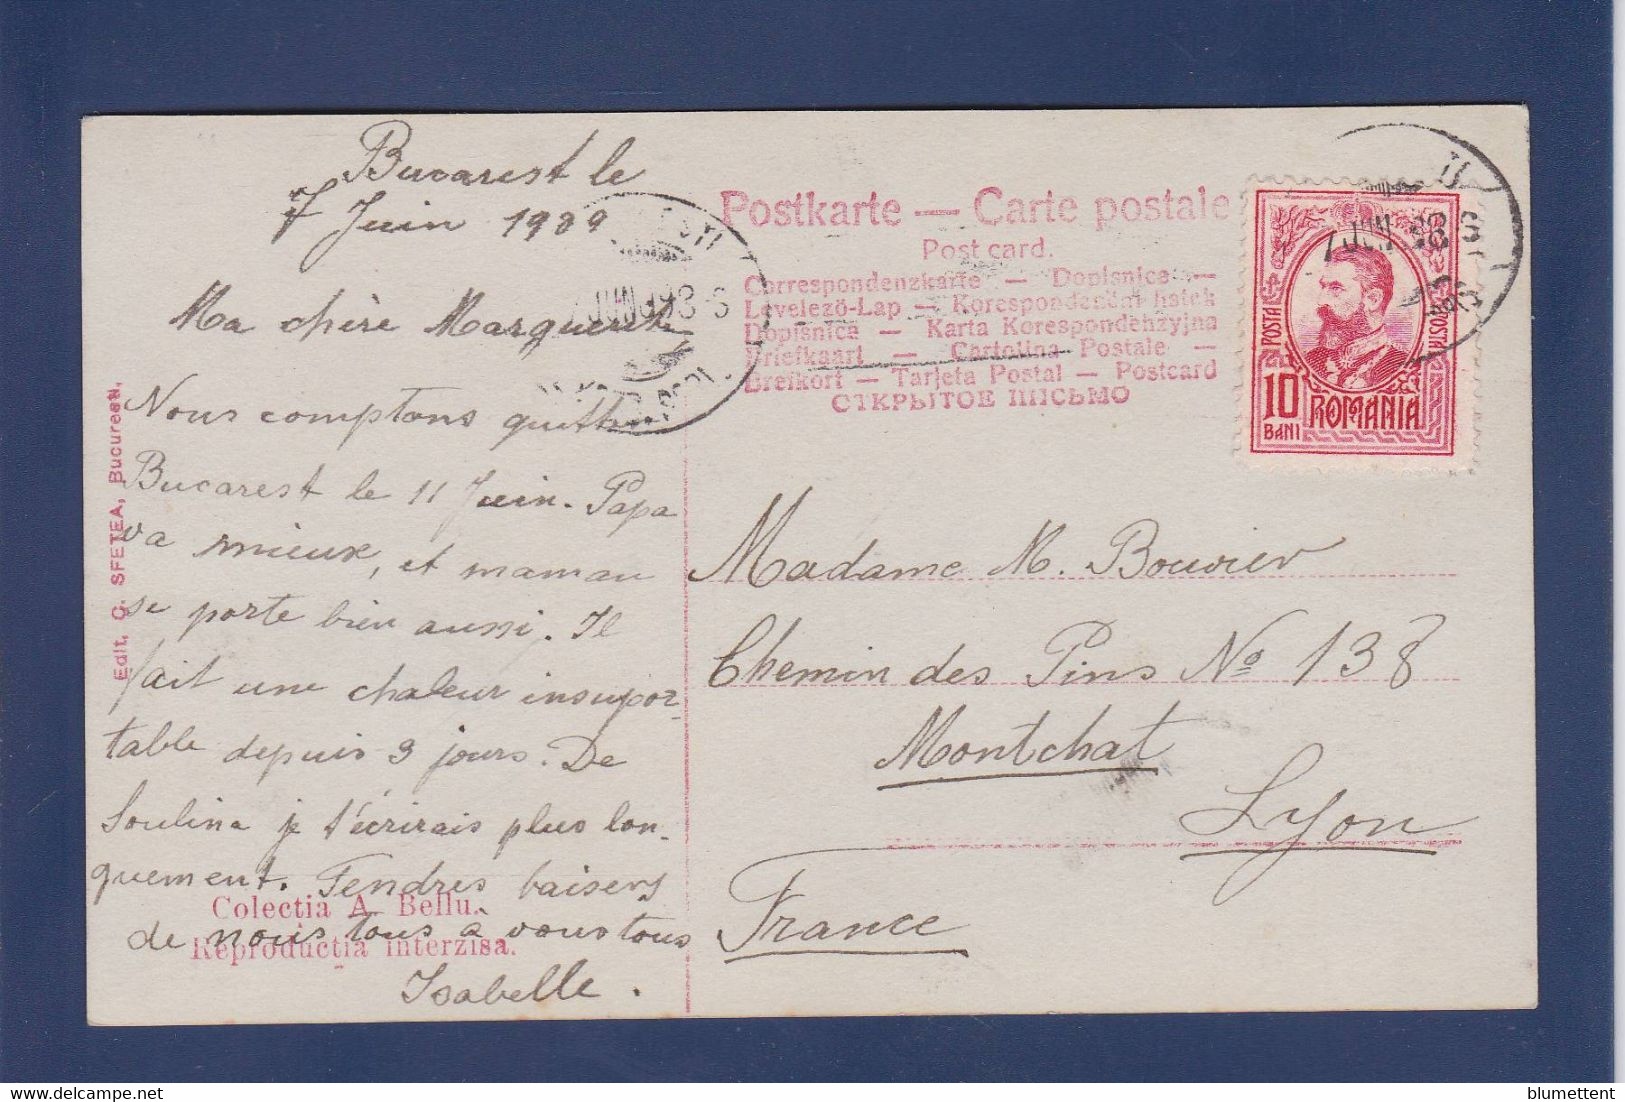 Bucarest le
7 Juin 1909
Ma chère Marguerite
Nous comptons quitter
Bucarest le 11 Juin. Papa
va mieux, et maman
se porte bien aussi. Il
fait une chaleur insupor-
table depuis 3 jours. De
Soulina je t'écrirais plus lon-
guement. Tendres baisers
de nous tous à vous tous
Isabelle.
Edit. C. SFETEA, Bucuresti.
Colectia A. Bellu.
Reproducția interzisa.
Postkarte — Carte postale
Post card.
Correspondenzkarte — Dopisnica —
Levelező-Lap — Korespondenční lístek
Dopisnica — Karta Korespondenzyjna
Briefkaart — Cartolina Postale —
Brefkort — Tarjeta Postal — Postcard
ОТКРЫТОЕ ПИСЬМО
7 JUN
POSTA
POSTA
10
BANI
ROMANIA
Madame M. Bouvier
Chemin des Pins No 138
Montchat
Lyon
France
blumettent